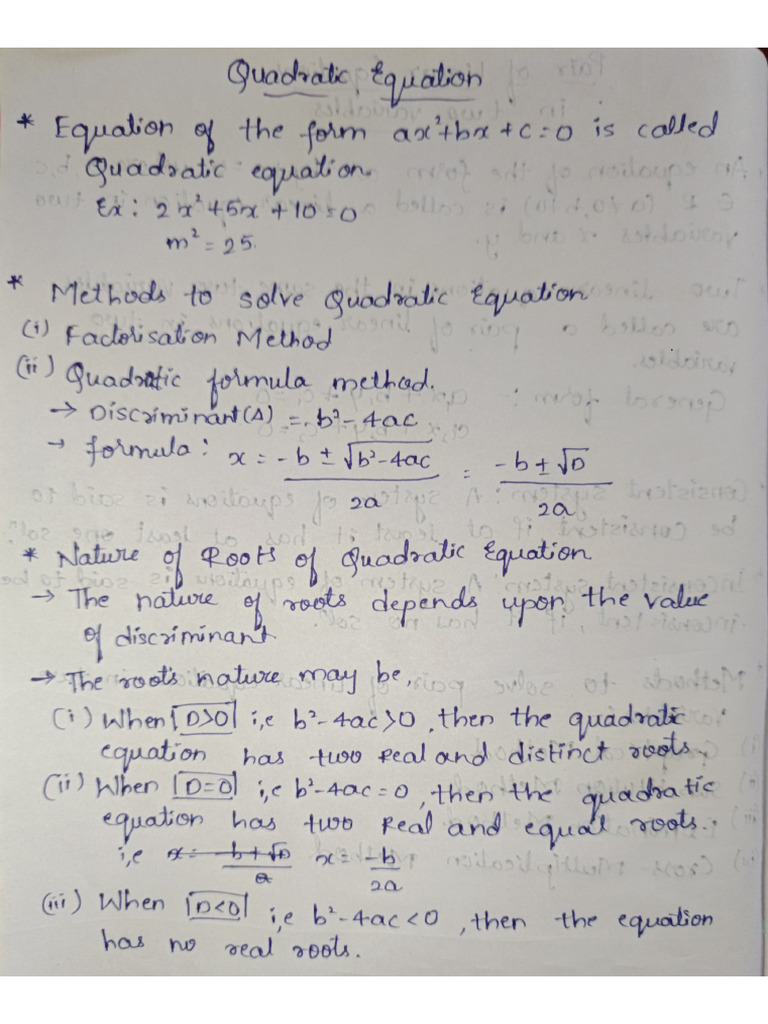 Quadratic Equation
* Equation of the form ax²+bx+c=0 is called
Quadratic equation.
Ex: 2x²+5x+10=0
m²=25.
* Methods to solve Quadratic Equation
(i) Factorisation Method
(ii) Quadratic formula method.
→ Discriminant(Δ) = b²-4ac
→ formula: x = -b ± √b²-4ac / 2a = -b ± √D / 2a
* Nature of Roots of Quadratic Equation
→ The nature of roots depends upon the value
of discriminant
→ The roots nature may be,
(i) When D>0 i,e b²-4ac>0, then the quadratic
equation has two real and distinct roots.
(ii) When D=0 i,e b²-4ac=0, then the quadratic
equation has two real and equal roots.
i,e x = -b+√D / 2 x = -b / 2a
(iii) When D<0 i,e b²-4ac<0, then the equation
has no real roots.